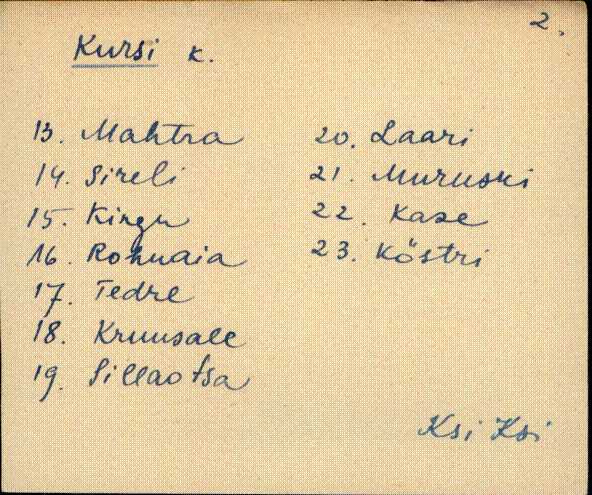 2.
Kursi k.
13. Mahtra
14. Sireli
15. Kingu
16. Rohuaia
17. Tedre
18. Kruusale
19. Sillaotsa
20. Laari
21. Muruski
22. Kase
23. Köstri
Ksi Ksi